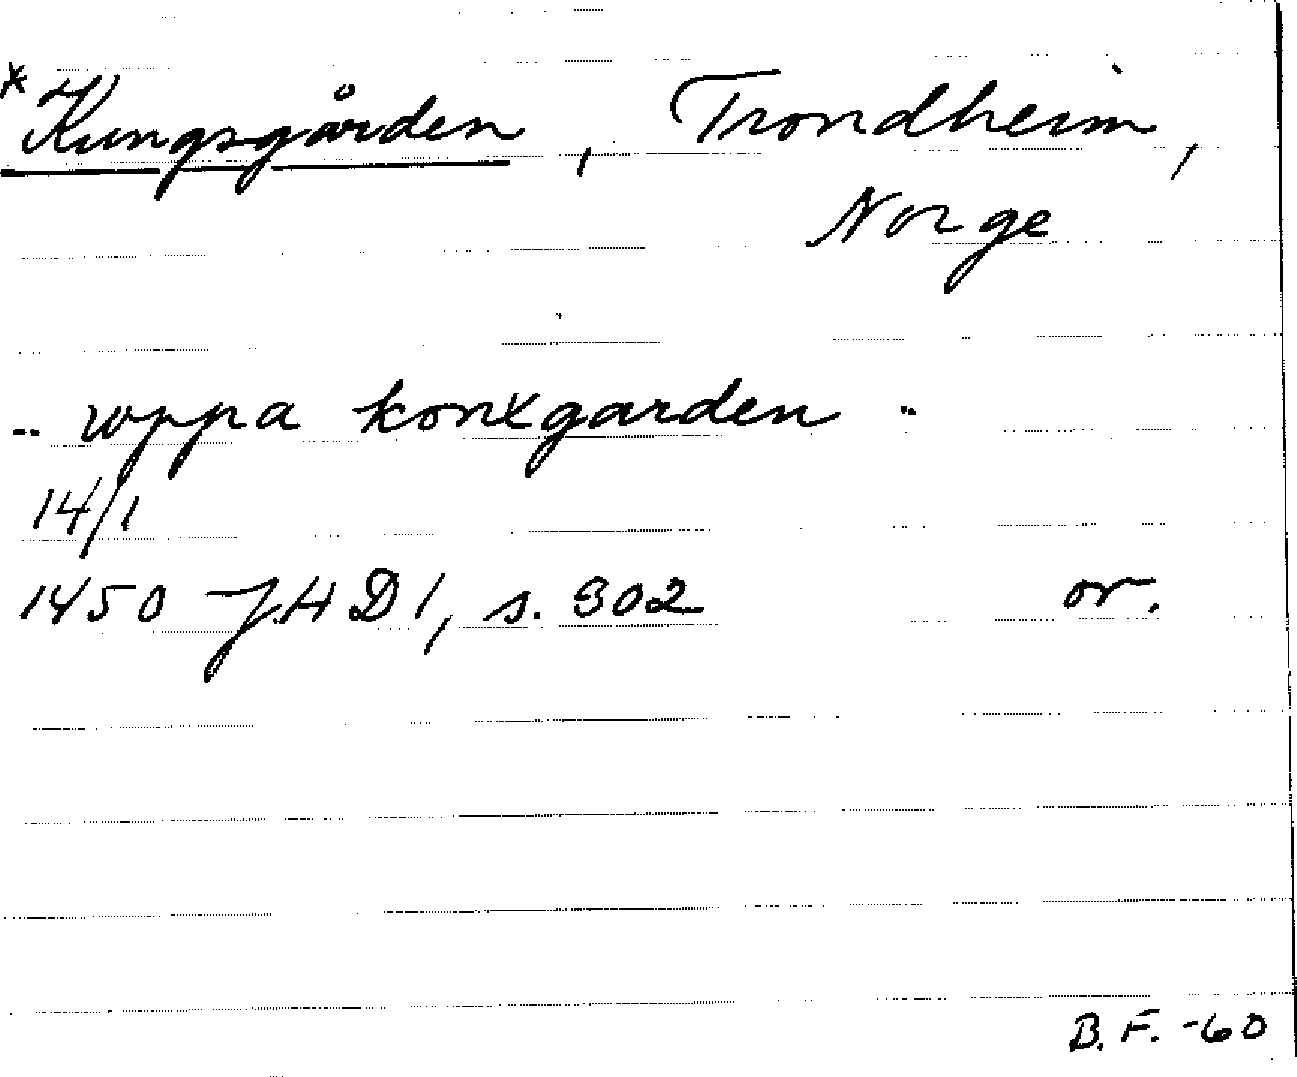 *Kungsgården, Trondheim,
Norge
.. wppa konxgarden ..
14/1
1450 JHD 1, s. 302 or.
B.F. -60